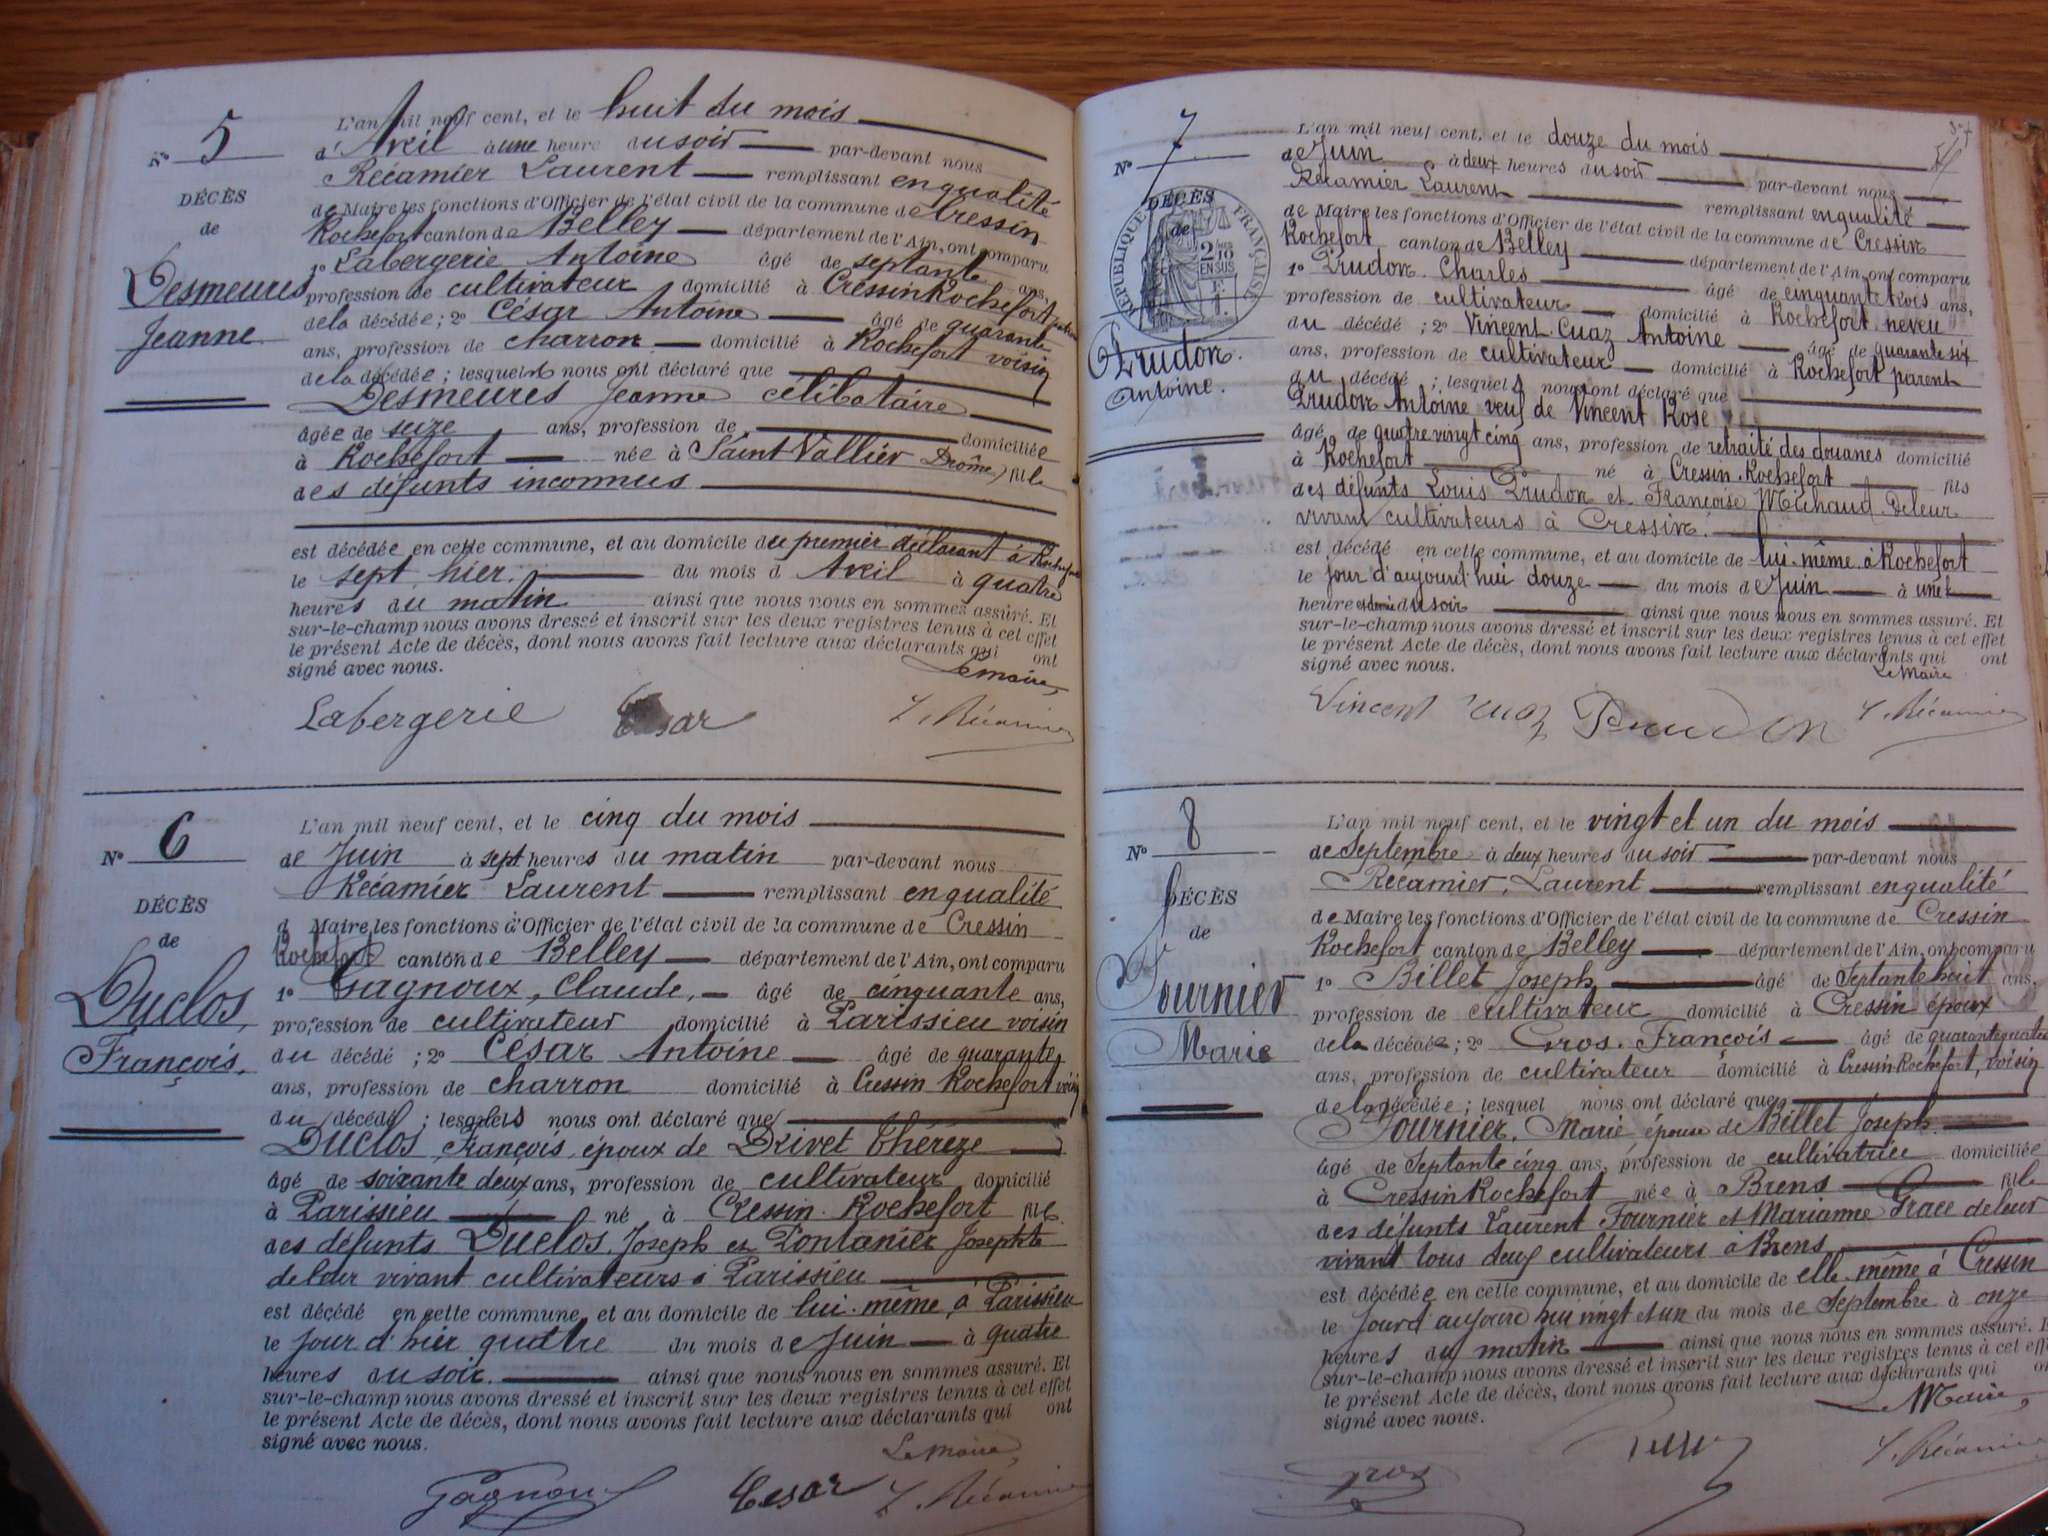 5
N°
DÉCÈS
de
Desmeures
Jeanne
L'an mil neuf cent, et le huit du mois
d'Avril à une heure du soir par-devant nous
Récamier Laurent remplissant en qualité
de Maire les fonctions d'Officier de l'état civil de la commune de Cressin
Rochefort canton de Belley département de l'Ain, ont comparu
1° Labergerie Antoine âgé de septante ans,
profession de cultivateur domicilié à Cressin Rochefort
de la décédée; 2° César Antoine âgé de quarante
ans, profession de charron domicilié à Rochefort voisin
de la décédée; lesquels nous ont déclaré que
Desmeures Jeanne célibataire
âgée de seize ans, profession de domiciliée
à Rochefort née à Saint Vallier Drôme) fille
des défunts inconnus
est décédée en cette commune, et au domicile du premier déclarant à Rochefort
le sept hier. du mois d Avril à quatre
heures du matin ainsi que nous nous en sommes assuré. Et
sur-le-champ nous avons dressé et inscrit sur les deux registres tenus à cet effet
le présent Acte de décès, dont nous avons fait lecture aux déclarants qui ont
signé avec nous.
Le maire,
Labergerie César L. Récamier
N° 6
DÉCÈS
de
Duclos,
François,
L'an mil neuf cent, et le cinq du mois
de Juin à sept heures du matin par-devant nous
Récamier Laurent remplissant en qualité
d Maire les fonctions d'Officier de l'état civil de la commune de Cressin
Rochefort canton de Belley département de l'Ain, ont comparu
1° Gagnoux, Claude, âgé de cinquante ans,
profession de cultivateur domicilié à Parissieu voisin
du décédé; 2° César Antoine âgé de quarante
ans, profession de charron domicilié à Cressin Rochefort voisin
du décédé; lesquels nous ont déclaré que
Duclos, François, époux de Drivet Thérèze
âgé de soixante deux ans, profession de cultivateur domicilié
à Parissieu né à Cressin-Rochefort fils
des défunts Duclos Joseph et Pontanier Josephte
de leur vivant cultivateurs à Parissieu
est décédé en cette commune, et au domicile de lui-même, à Parissieu
le jour d'hier quatre du mois de Juin à quatre
heures du soir. ainsi que nous nous en sommes assuré. Et
sur-le-champ nous avons dressé et inscrit sur les deux registres tenus à cet effet
le présent Acte de décès, dont nous avons fait lecture aux déclarants qui ont
signé avec nous.
Le Maire,
Gagnoux César L. Récamier
7
N°
DÉCÈS
de
RÉPUBLIQUE FRANÇAISE
2/10 EN SUS
Prudon.
Antoine.
L'an mil neuf cent, et le douze du mois
de Juin à deux heures du soir par-devant nous
Récamier Laurent remplissant en qualité
de Maire les fonctions d'Officier de l'état civil de la commune de Cressin
Rochefort canton de Belley département de l'Ain, ont comparu
1° Prudon Charles âgé de cinquante trois ans,
profession de cultivateur domicilié à Rochefort neveu
du décédé; 2° Vincent-Cuaz Antoine âgé de quarante six
ans, profession de cultivateur domicilié à Rochefort parent
du décédé; lesquels nous ont déclaré que
Prudon Antoine veuf de Vincent Rose
âgé de quatre vingt cinq ans, profession de retraité des douanes domicilié
à Rochefort né à Cressin-Rochefort fils
des défunts Louis Prudon et Françoise Michaud. De leur
vivant cultivateurs à Cressin.
est décédé en cette commune, et au domicile de lui-même à Rochefort
le jour d'aujourd'hui douze du mois de Juin à une
heure et demie du soir ainsi que nous nous en sommes assuré. Et
sur-le-champ nous avons dressé et inscrit sur les deux registres tenus à cet effet
le présent Acte de décès, dont nous avons fait lecture aux déclarants qui ont
signé avec nous.
Le Maire
Vincent Cuaz Prudon L. Récamier
N° 8
DÉCÈS
de
Fournier
Marie
L'an mil neuf cent, et le vingt et un du mois
de Septembre à deux heures du soir par-devant nous
Récamier, Laurent remplissant en qualité
de Maire les fonctions d'Officier de l'état civil de la commune de Cressin
Rochefort canton de Belley département de l'Ain, ont comparu
1° Billet Joseph âgé de Septante huit ans,
profession de cultivateur domicilié à Cressin époux
de la décédée; 2° Gros. François âgé de quarante quatre
ans, profession de cultivateur domicilié à Cressin-Rochefort, voisin
de la décédée; lesquel nous ont déclaré que
Fournier, Marie épouse de Billet Joseph
âgé de Septante cinq ans, profession de cultivatrice domiciliée
à Cressin Rochefort née à Brens fille
des défunts Laurent Fournier et Marianne Grace de leur
vivant tous deux cultivateurs à Brens
est décédée en cette commune, et au domicile de elle-même à Cressin
le jour d'aujourd'hui vingt et un du mois de Septembre à onze
heures du matin ainsi que nous nous en sommes assuré.
sur-le-champ nous avons dressé et inscrit sur les deux registres tenus à cet eff
le présent Acte de décès, dont nous avons fait lecture aux déclarants qui
signé avec nous.
Le Maire,
Gros L. Récamier